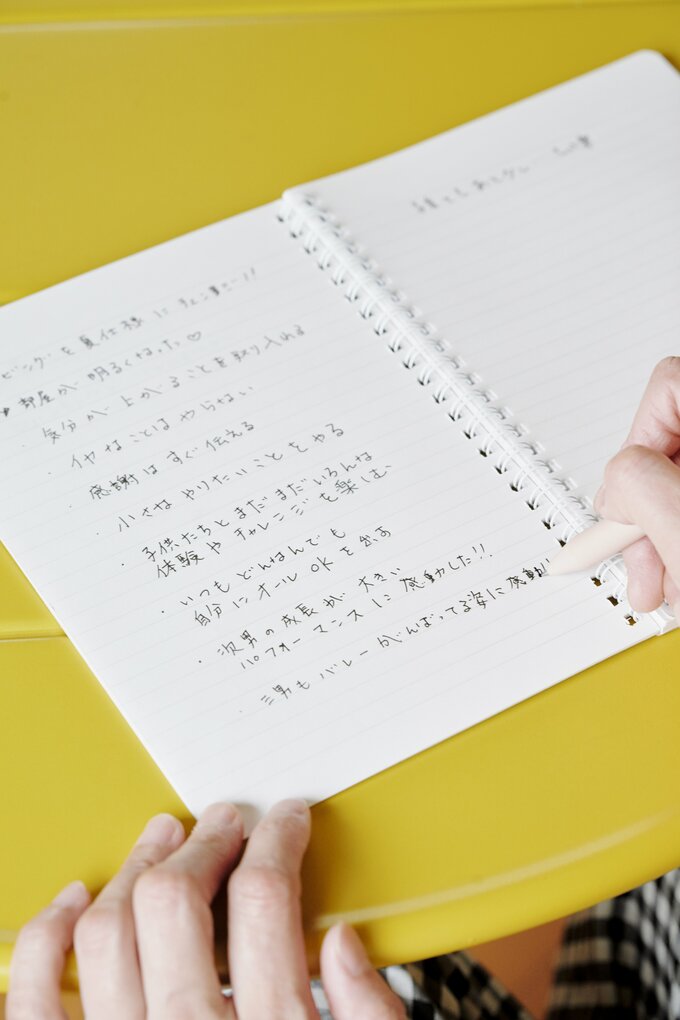 ビングを夏仕様にチェンジー!!
お部屋が明るくなった♡
・気分が上がることを取り入れる
・イヤなことはやらない
・感謝はすぐ伝える
・小さなやりたいことをやる
・子供たちとまだまだいろんな
体験やチャレンジを楽しむ
・いつもどんなんでも
自分にオールOKを出す
・次男の成長が大きい
パフォーマンスに感動した!!
・三男もバレーがんばってる姿に感動!